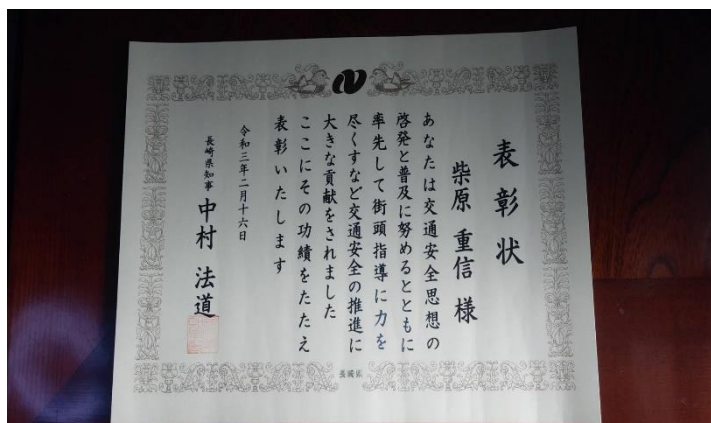 表彰状
柴原 重信 様
あなたは交通安全思想の
啓発と普及に努めるとともに
率先して街頭指導に力を
尽くすなど交通安全の推進に
大きな貢献をされました
ここにその功績をたたえ
表彰いたします
令和三年二月十六日
長崎県知事 中村 法道
長崎県